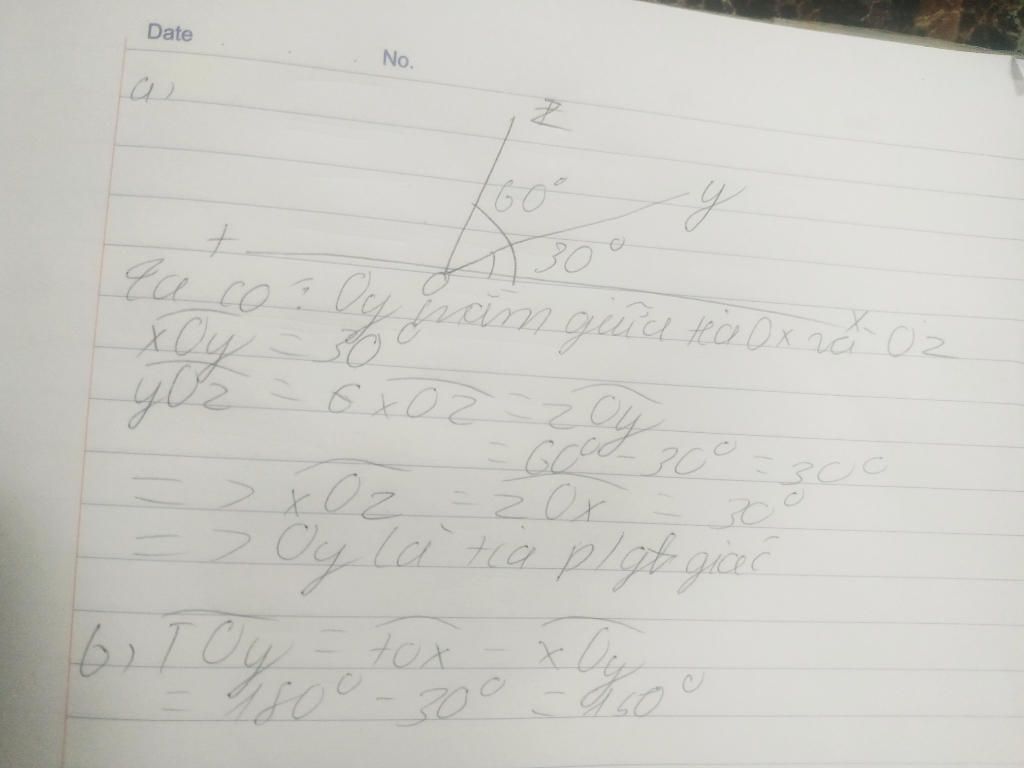 Date
No.
a)
z
60°
y
30°
t
O
x
Ta có: Oy nằm giữa tia Ox và Oz
xOy = 30°
yOz = 6 xOz = zOy
= 60° - 30° = 30°
=> xOz = zOx = 30°
=> Oy là tia p/ giác
b) TOy = tOx - xOy
= 180° - 30° = 150°